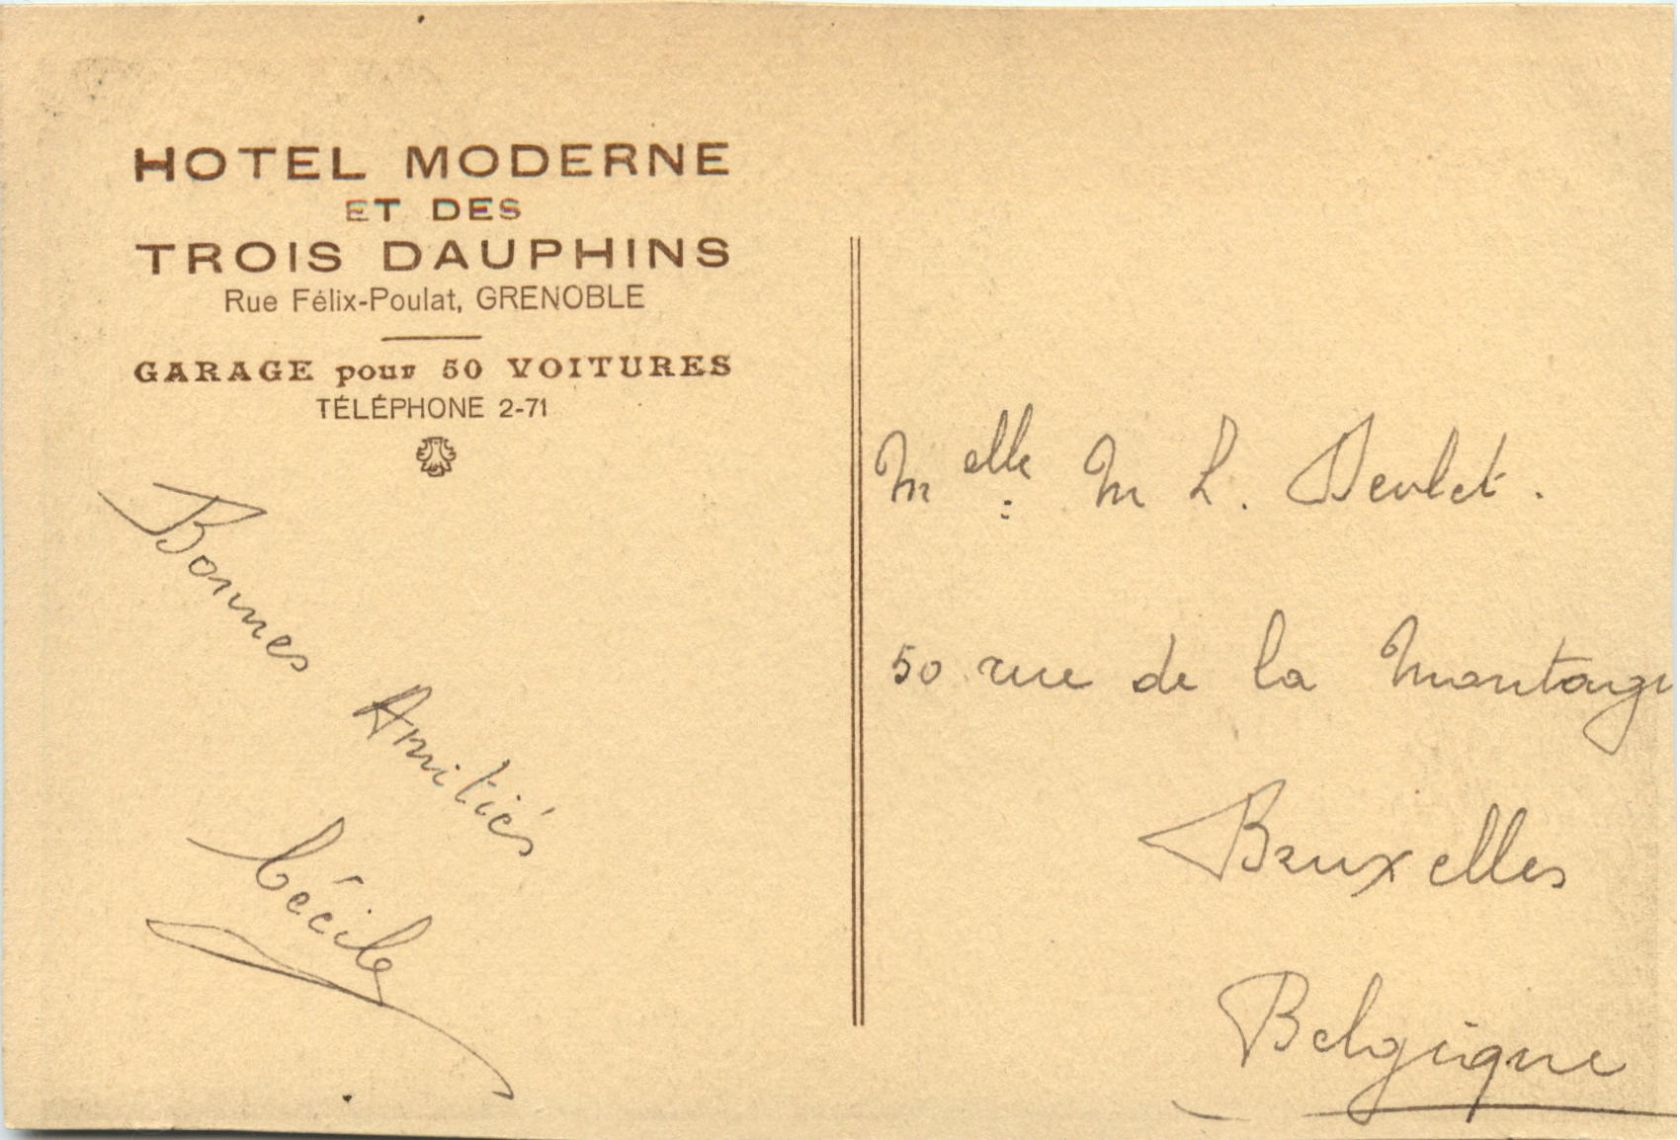 HOTEL MODERNE
ET DES
TROIS DAUPHINS
Rue Félix-Poulat, GRENOBLE
GARAGE pour 50 VOITURES
TÉLÉPHONE 2-71
Bonnes
Amitiés
Cécile
Melle M L.
50 rue de la Montagn
Bruxelles
Belgique